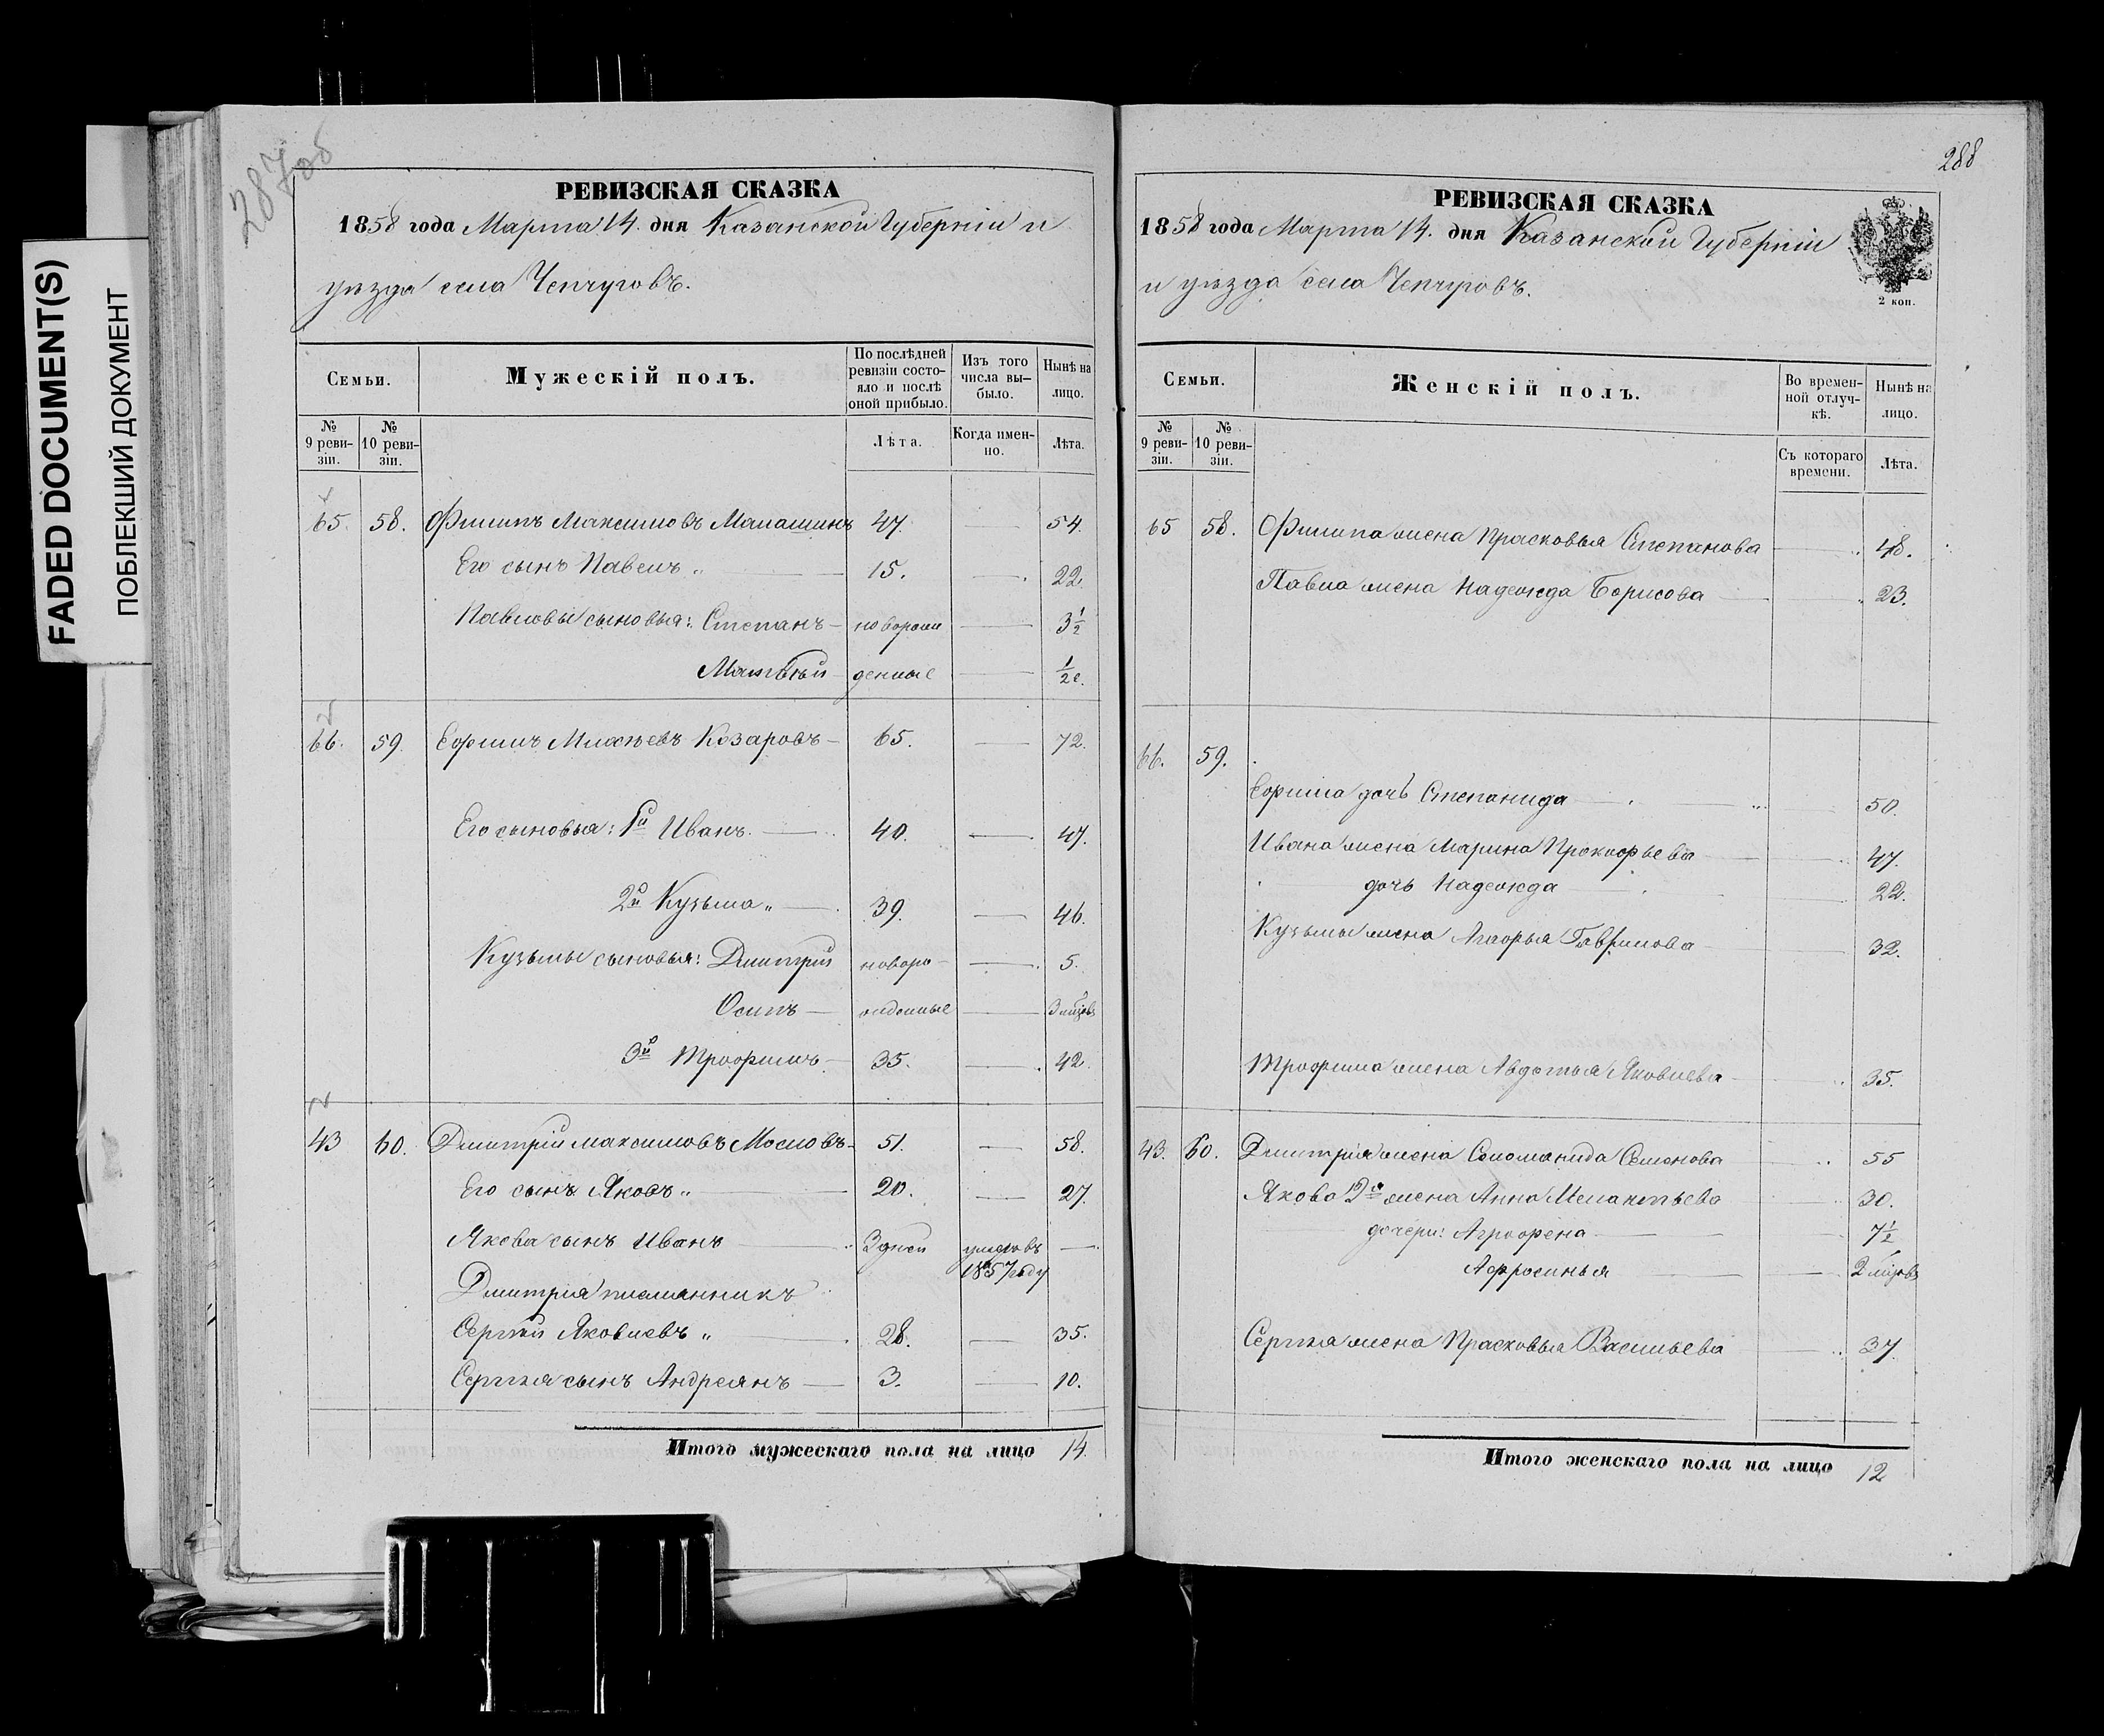 FADED DOCUMENT(S)
ПОБЛЕКШИЙ ДОКУМЕНТ
287 об
РЕВИЗСКАЯ СКАЗКА
1858 года Марта 14. дня Казанской Губерніи и
уѣзда села Чепчуговъ.
Семьи.
Мужескій полъ.
По послѣдней ревизіи состо-яло и послѣ оной прибыло.
Изъ того числа вы-было.
Нынѣ на лицо.
№ 9 реви-зіи.
№ 10 реви-зіи.
Лѣта.
Когда имен-но.
Лѣта.
65. 58. Филипъ Максимовъ Малашинъ 47. 54.
Его сынъ Павелъ 15. 22.
Павловы сыновья: Степанъ новорож 3 1/2
Матвѣй денные 1/2 е.
66. 59. Ефимъ Михѣевъ Козаровъ 65. 72.
Его сыновья: 1й Иванъ. 40. 47.
2й Кузьма 39. 46.
Кузьмы сыновья: Дмитрій новоро 5.
Осипъ жденные 3 мѣсяцовъ
3й Трофимъ 35. 42.
43 60. Дмитрій Максимовъ Масловъ 51. 58.
Его сынъ Яковъ 20. 27.
Якова сынъ Иванъ 3 дней умеръ въ
1857 году
Дмитрія племянникъ
Сергѣй Яковлевъ 28. 35.
Сергѣя сынъ Андреянъ 3. 10.
Итого мужескаго пола на лицо 14.
288
РЕВИЗСКАЯ СКАЗКА
1858 года Марта 14. дня Казанской Губерніи
и уѣзда села Чепчуговъ.
2 коп.
Семьи.
Женскій полъ.
Во времен-ной отлуч-кѣ.
Нынѣ на лицо.
№ 9 реви-зіи.
№ 10 реви-зіи.
Съ котораго времени.
Лѣта.
65 58. Филипа жена Прасковья Степанова 48.
Павла жена Надежда Борисова 23.
66. 59.
Ефима дочь Степанида 50.
Ивана жена Марина Прокофьева 47.
дочь Надежда 22.
Кузьмы жена Гаврилова 32.
Трофима жена Авдотья Яковлева 35.
43. 60. Дмитрія жена Соломанида Семенова 55
Якова 2я жена Анна Мелантьева 30.
дочери: Агрофена 7 1/2
Афросинья 2 мѣсяцовъ
Сергѣя жена Прасковья Васильева 37.
Итого женскаго пола на лицо 12